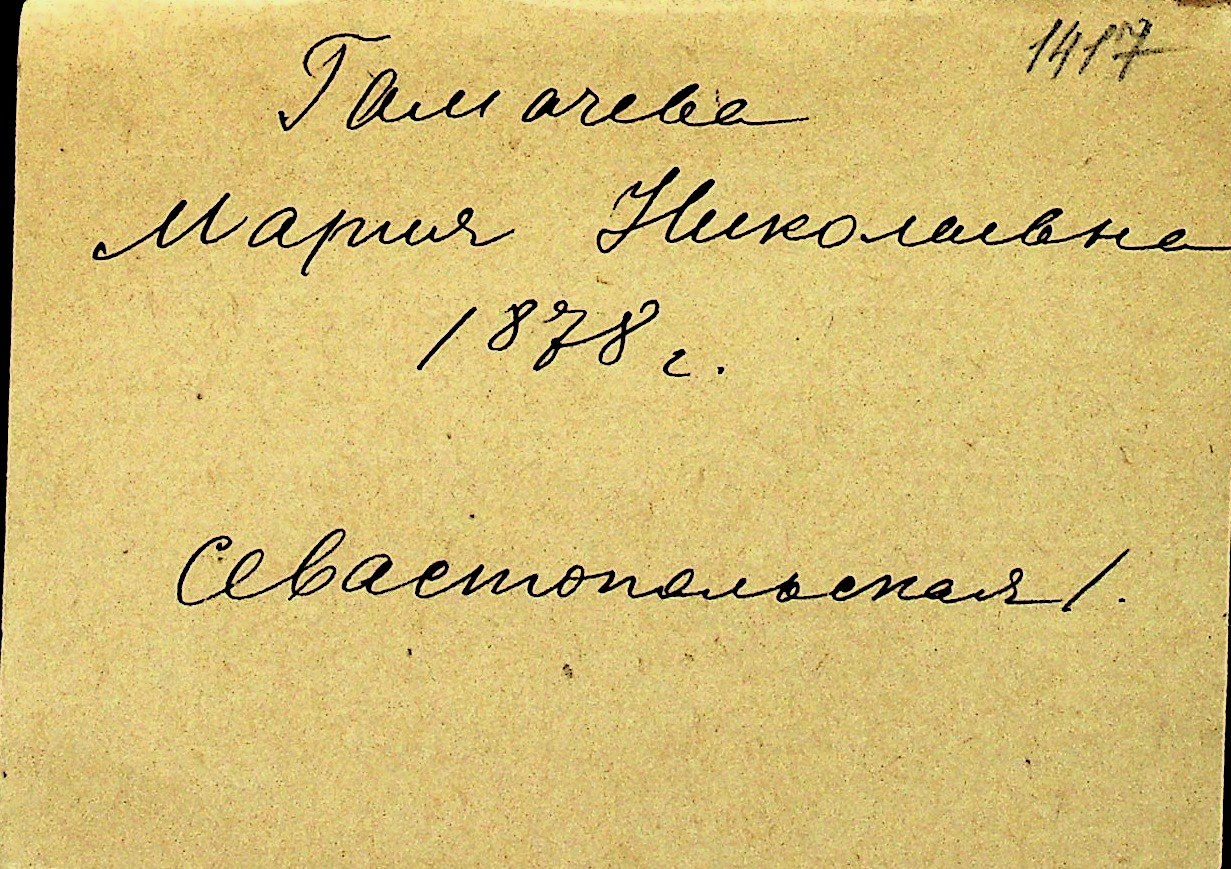 1417
Гамачева
Мария Николаевна
1878 г.
Севастопольская 1.